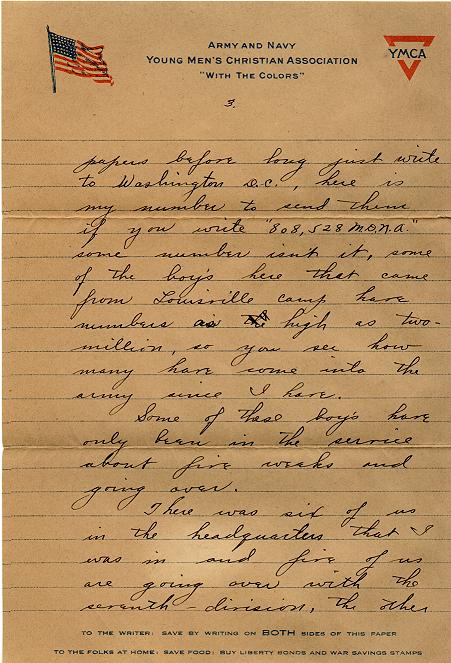 ARMY AND NAVY
YOUNG MEN'S CHRISTIAN ASSOCIATION
"WITH THE COLORS"
YMCA
3.
papers before long just write
to Washington D.C., here is
my number to send them
if you write "808,528 M.D.N.A."
some number isn't it, some
of the boy's here that came
from Louisville camp have
numbers as high as two-
million, so you see how
many have come into the
army since I have.
Some of these boy's have
only been in the service
about five weeks and
going over.
There was six of us
in the headquarters that I
was in and five of us
are going over with the
seventh - division, the other
TO THE WRITER: SAVE BY WRITING ON BOTH SIDES OF THIS PAPER
TO THE FOLKS AT HOME: SAVE FOOD: BUY LIBERTY BONDS AND WAR SAVINGS STAMPS